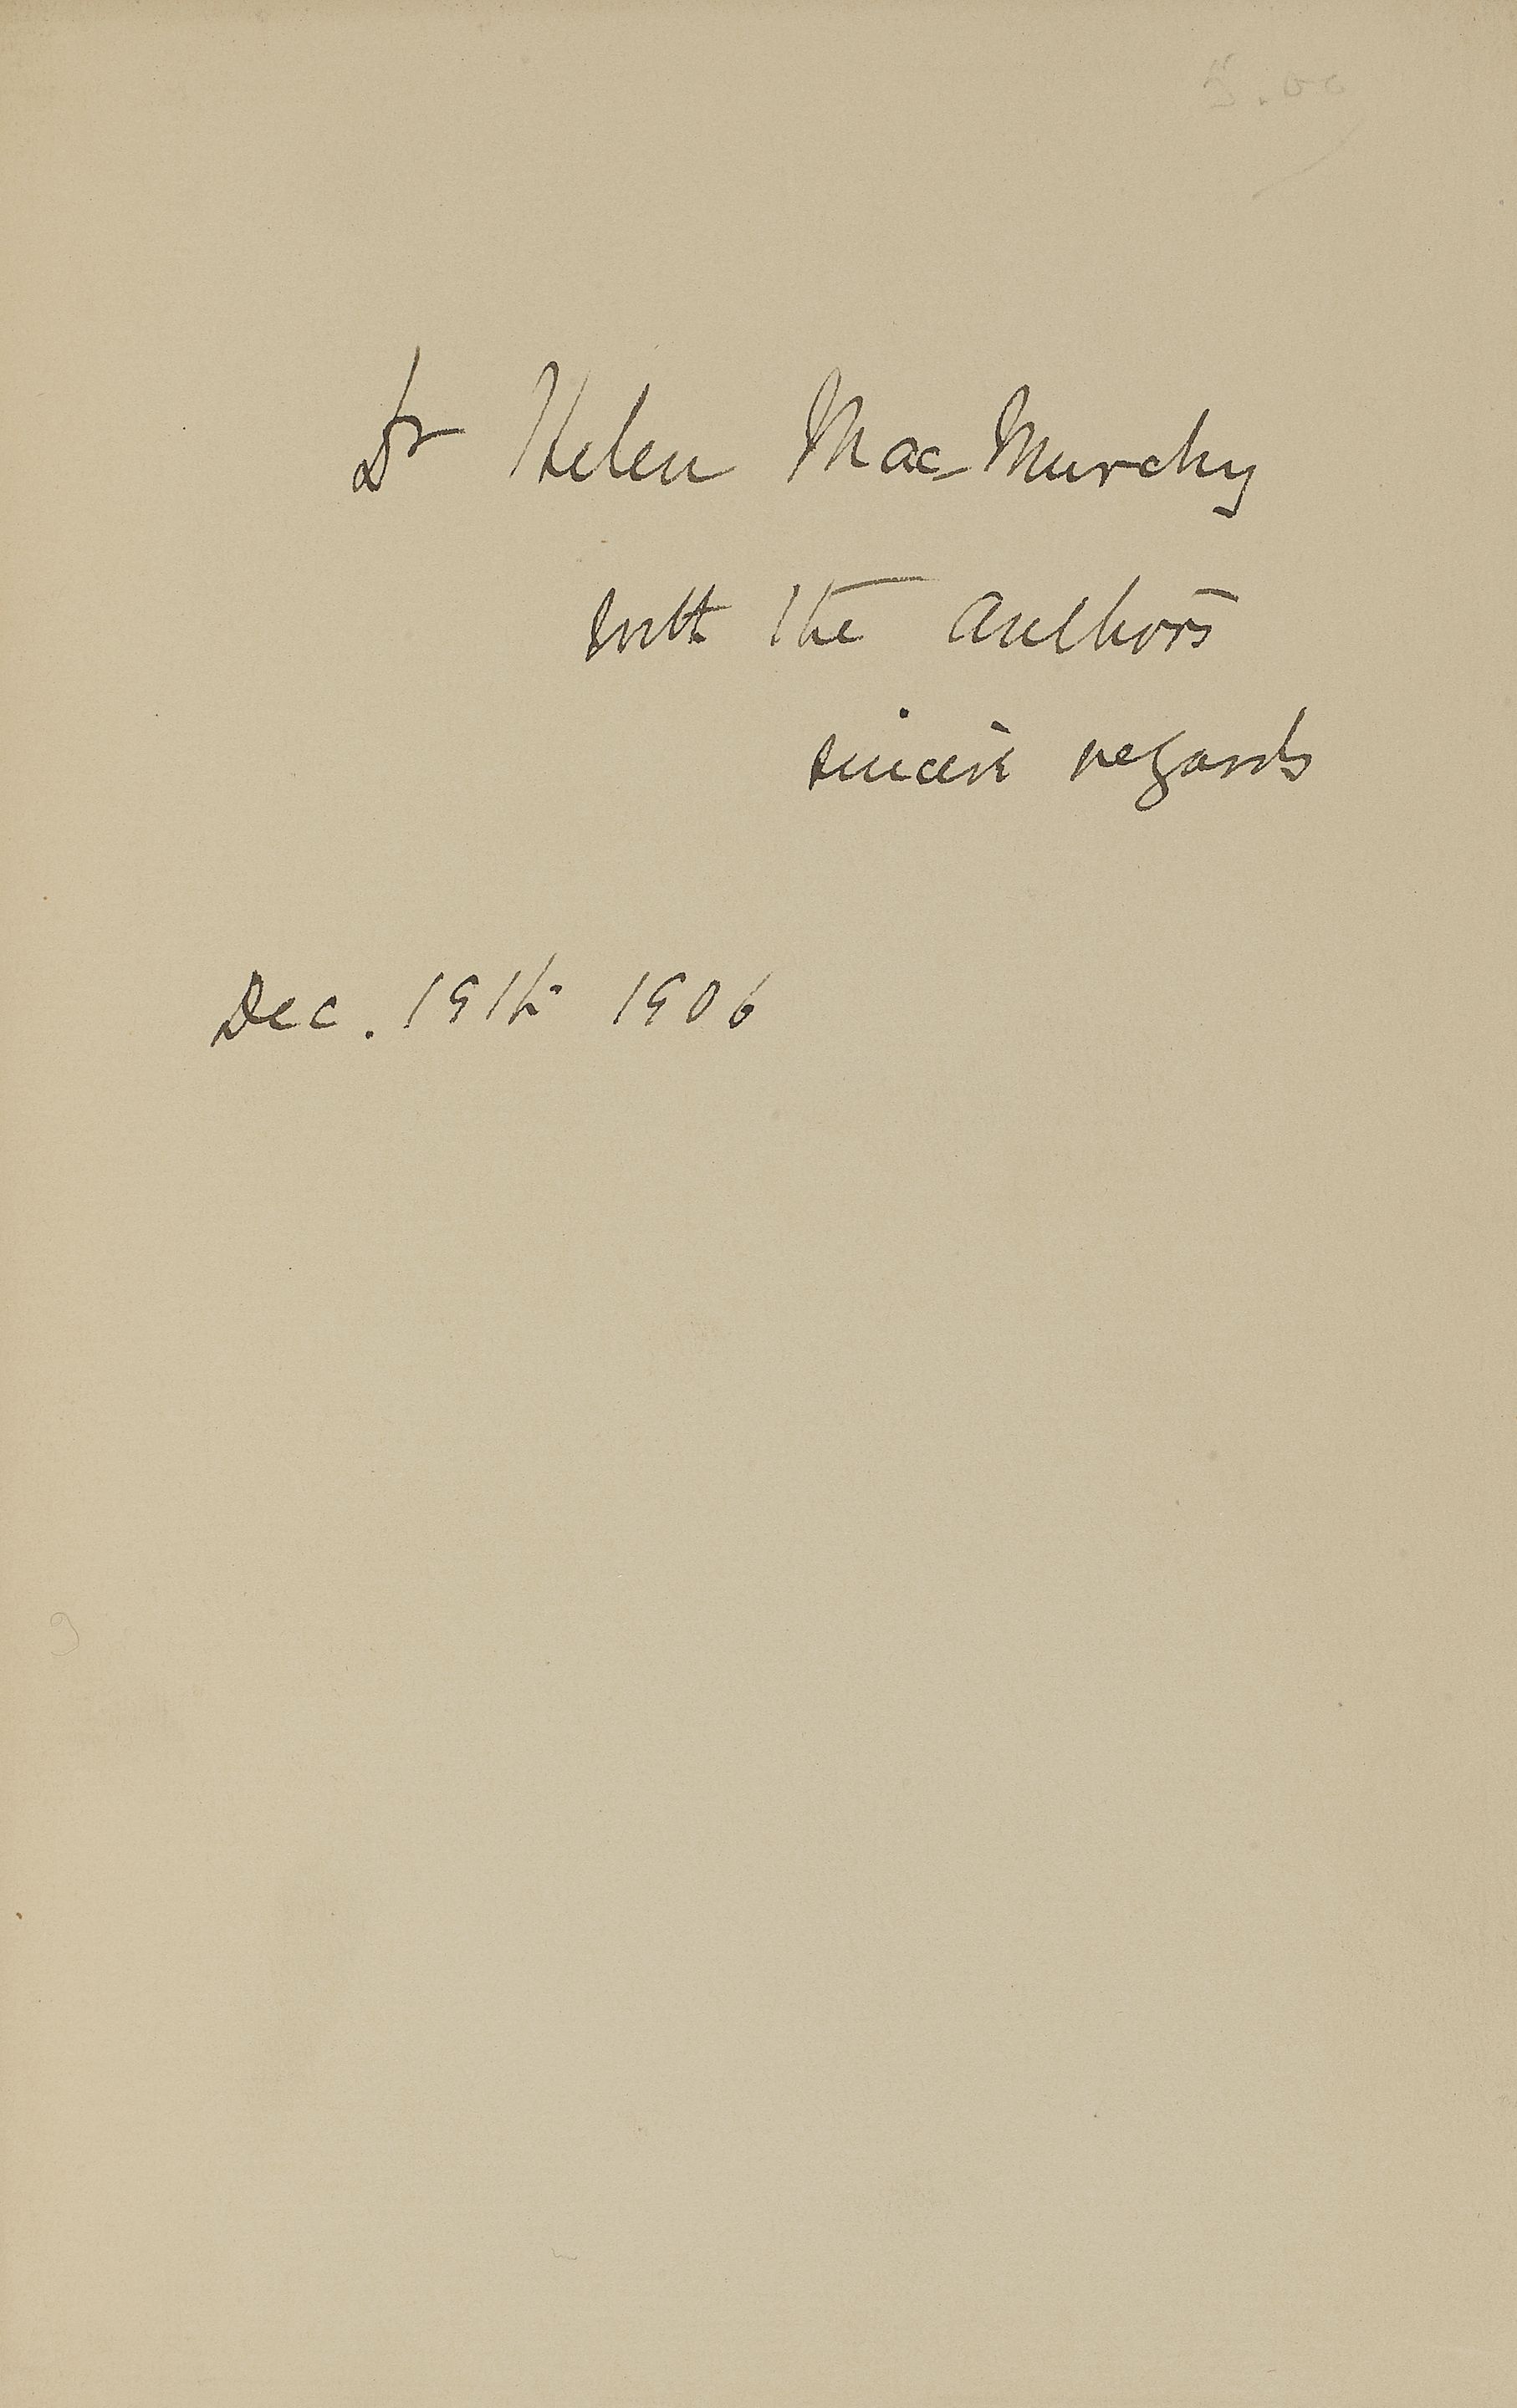 5.00
Dr Helen MacMurchy
with the authors
sincere regards
Dec. 19th 1906